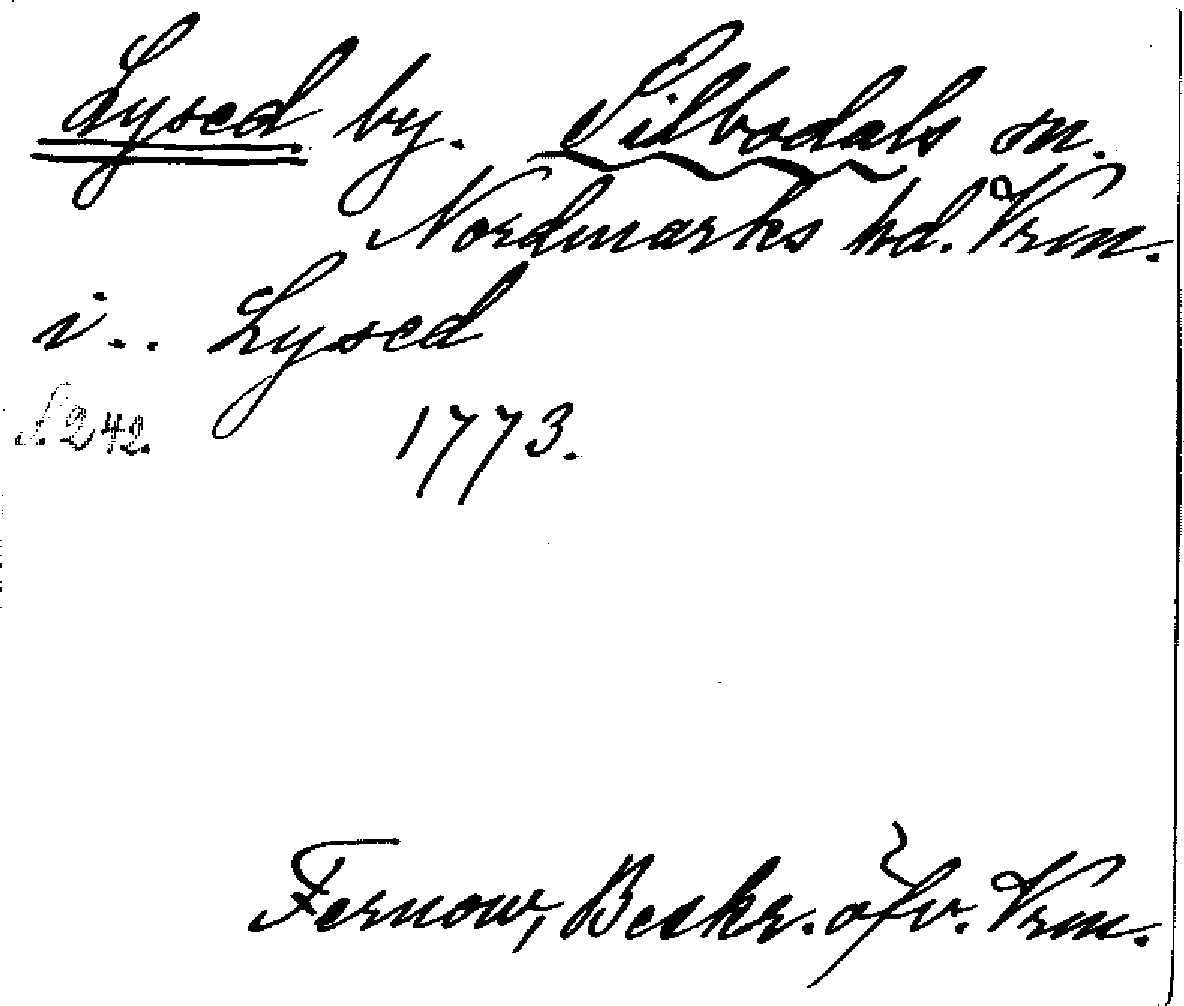 Lysed by. Silbodals sn.
Nordmarks hd. Vrm.
i.. Lysed
s. 242. 1773.
Fernow, Beskr. öfv. Vrm.